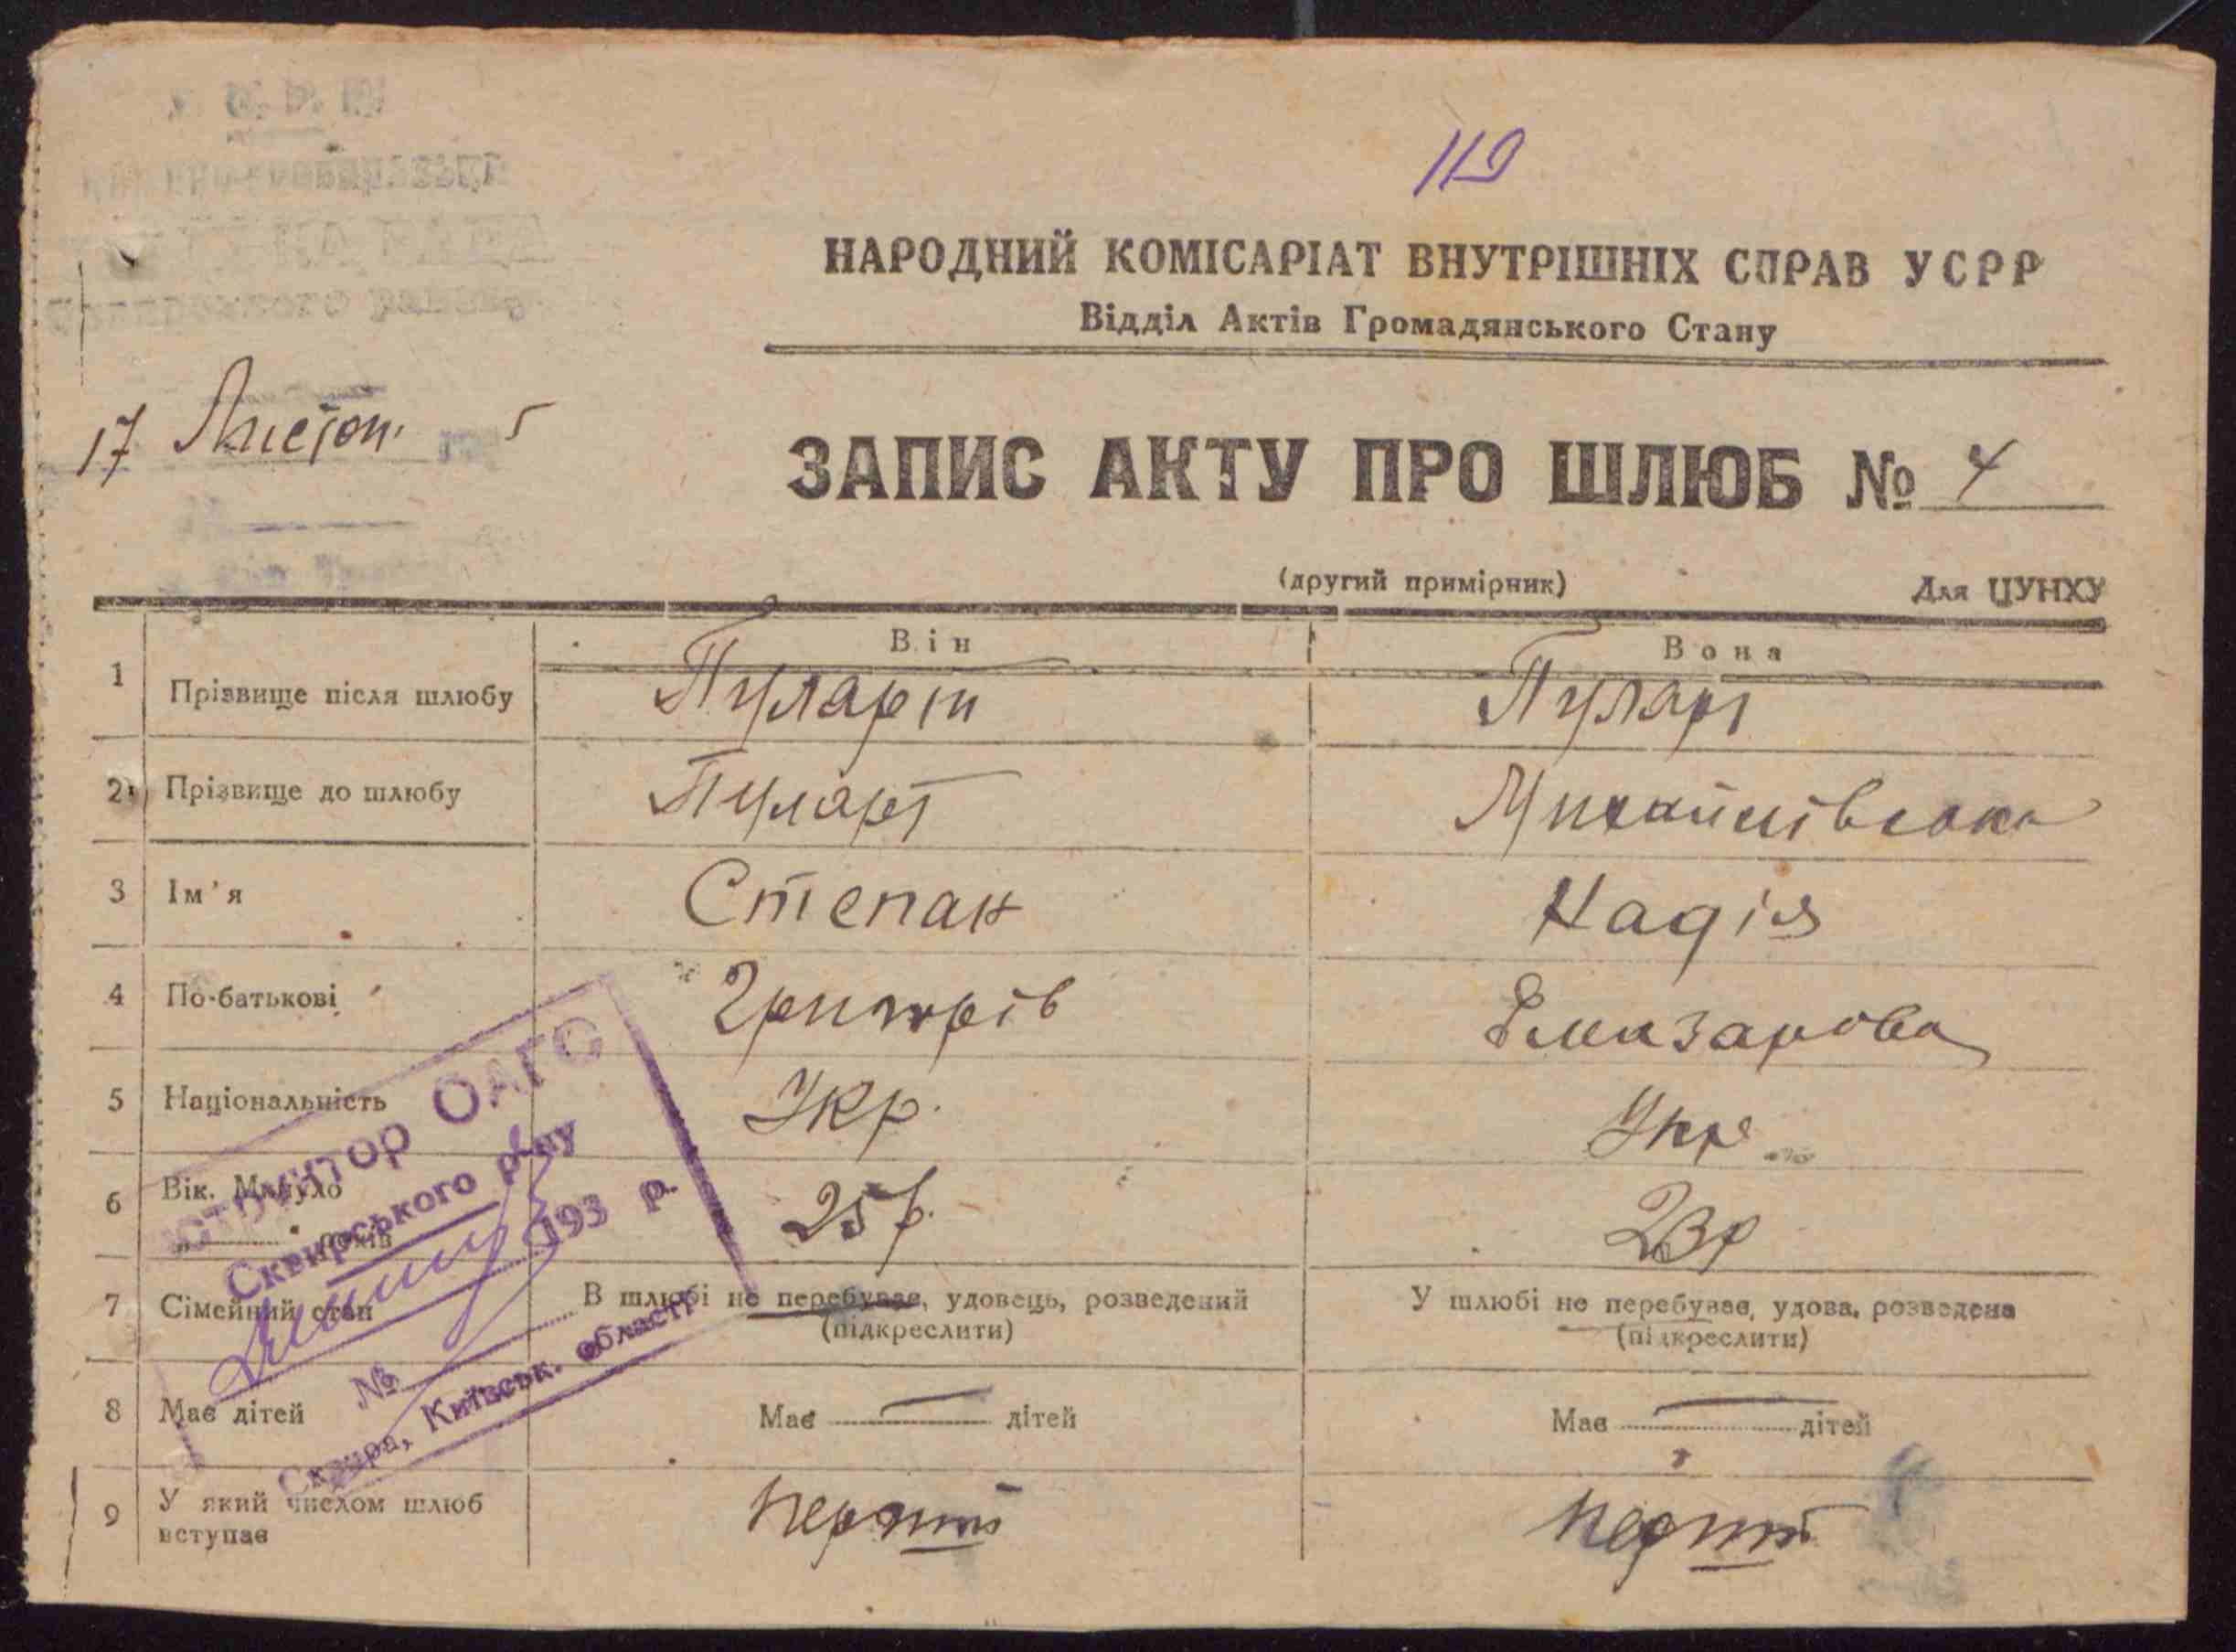 119
НАРОДНИЙ КОМІСАРІАТ ВНУТРІШНІХ СПРАВ УСРР
Відділ Актів Громадянського Стану
17 Листоп. 5
ЗАПИС АКТУ ПРО ШЛЮБ № 4
(другий примірник) Для ЦУНХУ
Він Вона
1 Прізвище після шлюбу Пуларт Пуларт
2 Прізвище до шлюбу Пуларт Михайлівська
3 Ім'я Степан Надія
4 По-батькові Григорів Елизарова
5 Національність Укр. Укр.
6 Вік. Минуло 25 р. 23 р
„ “ років
7 Сімейний стан В шлюбі не перебував, удовець, розведений У шлюбі не перебував, удова, розведена
(підкреслити) (підкреслити)
8 Має дітей Має — дітей Має — дітей
9 У який числом шлюб перший перший
вступає
Інструктор ОАГС
Сквирського р-ну
193 р.
№
Сквира, Київськ. області